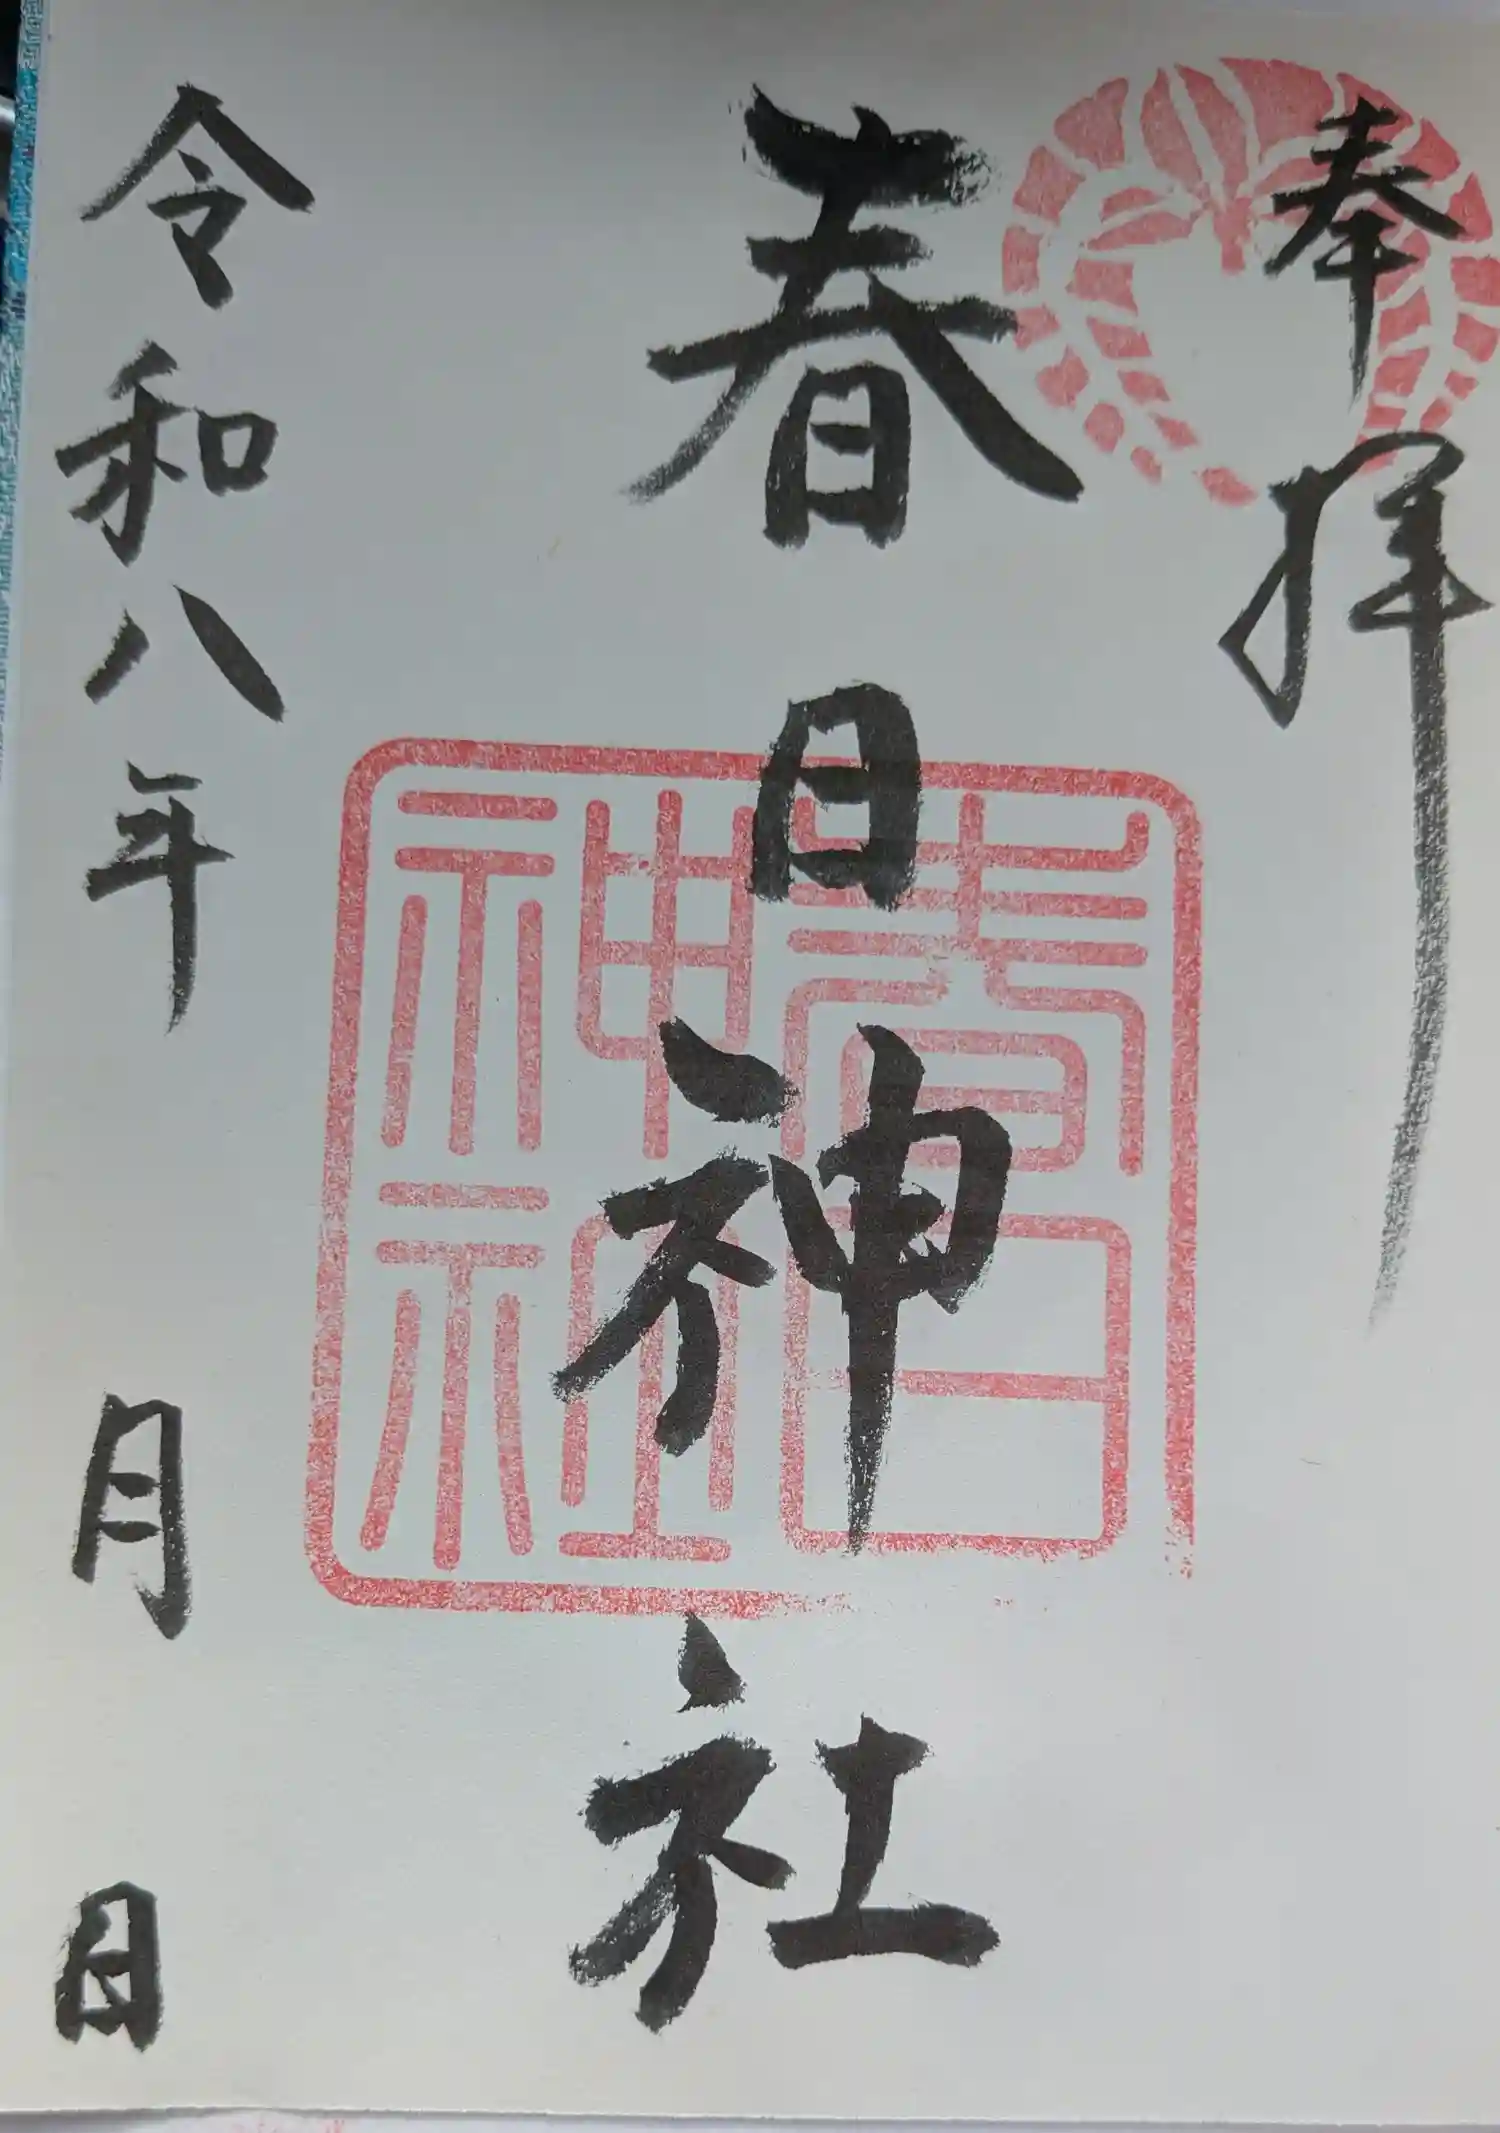 奉拝
春日神社
春日神社
令和八年 月 日